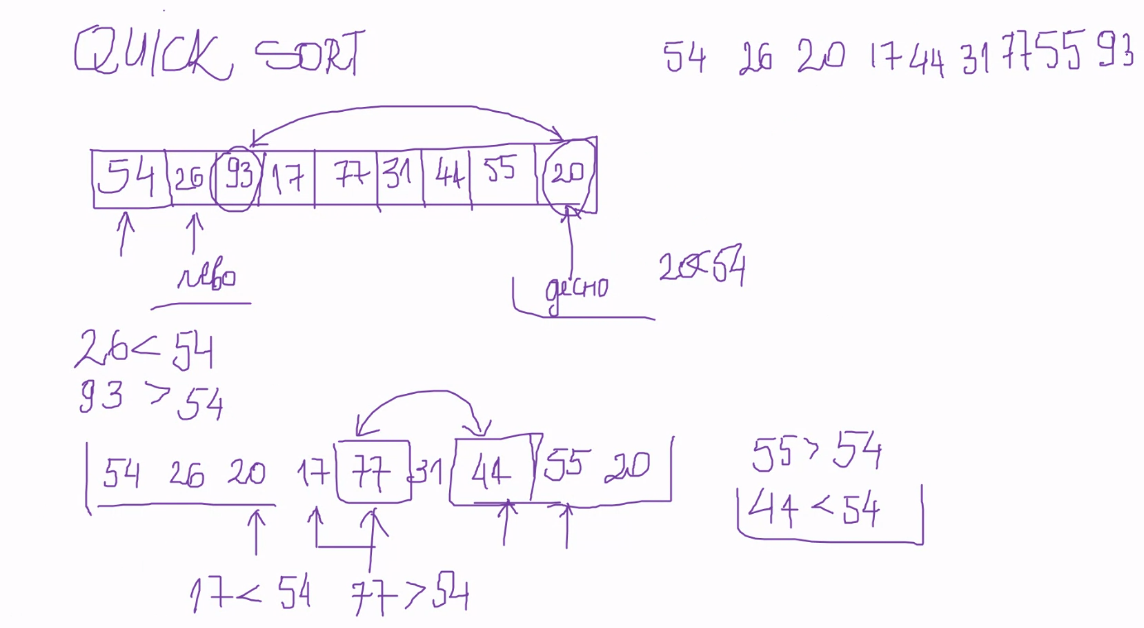 QUICK SORT
54 26 20 17 44 31 77 55 93
54 26 93 17 77 31 44 55 20
лево
десно
20<54
26< 54
93 > 54
54 26 20 17 77 31 44 55 20
55> 54
44 < 54
17< 54 77 >54